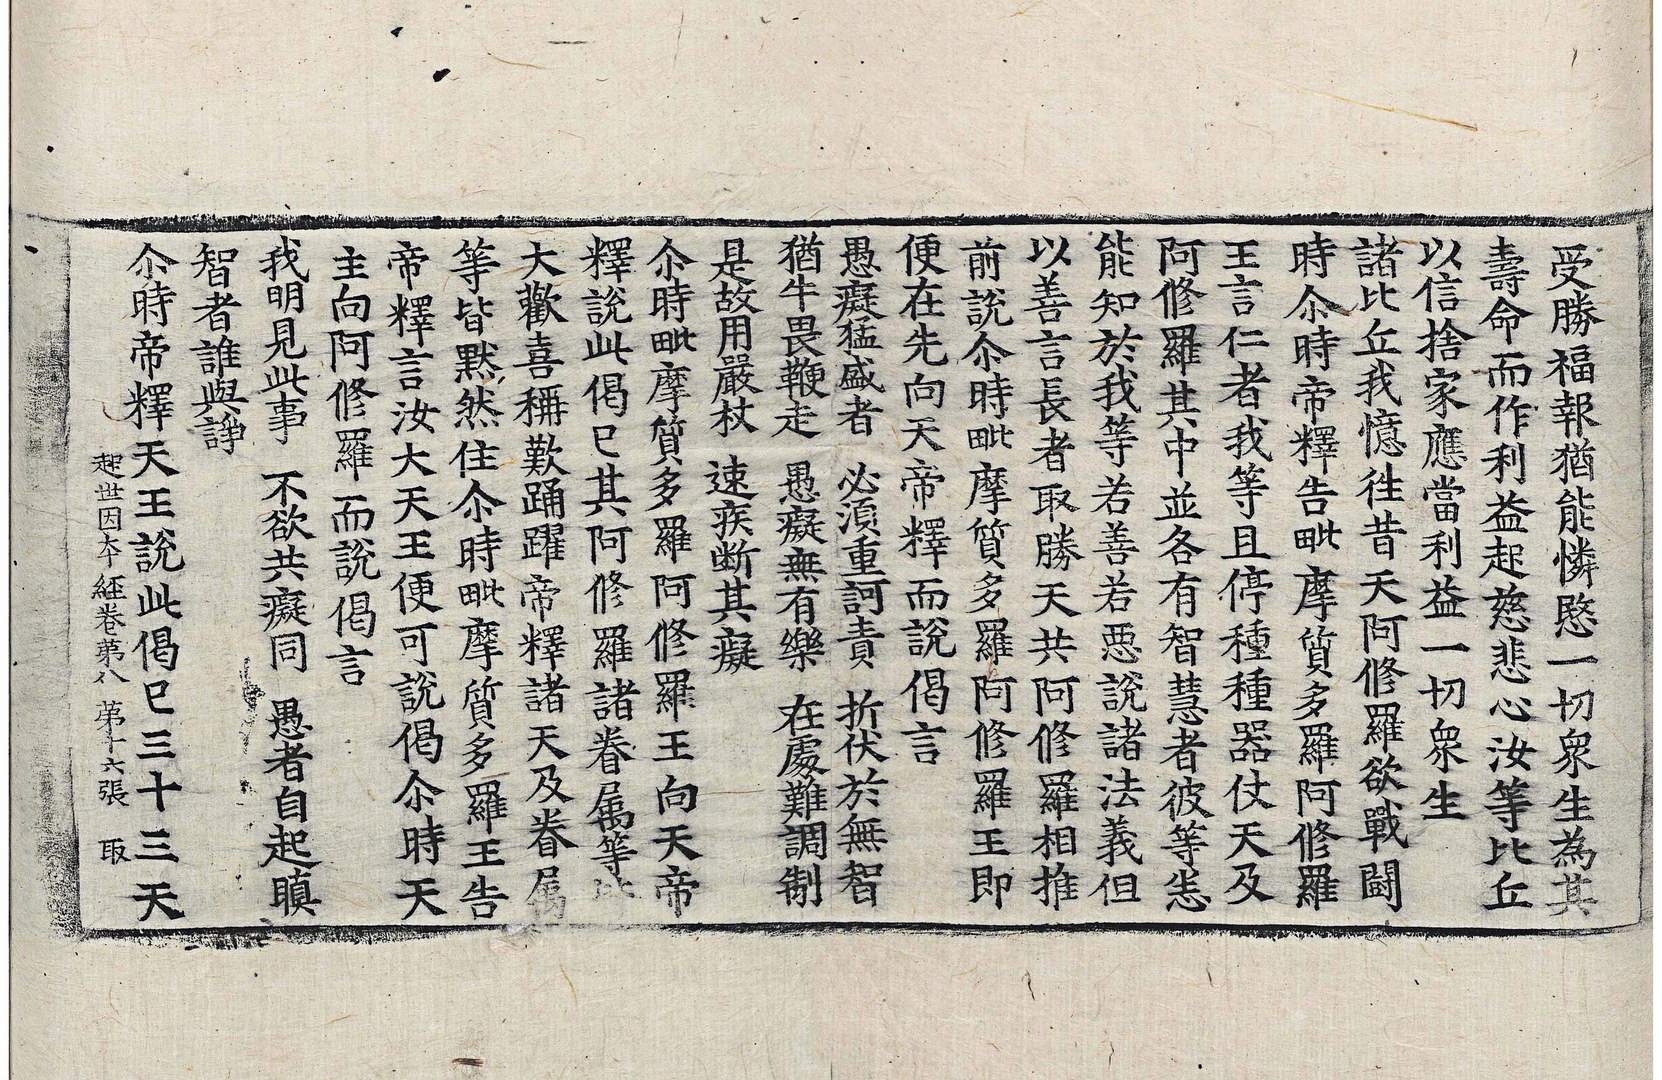 受勝福報猶能憐愍一切衆生為其
壽命而作利益起慈悲心汝等比丘
以信捨家應當利益一切衆生
諸比丘我憶往昔天阿修羅欲戰闘
時尒時帝釋告毗摩質多羅阿修羅
王言仁者我等且停種種器仗天及
阿修羅其中並各有智慧者彼等恙
能知於我等若善若惡說諸法義但
以善言長者取勝天共阿修羅相推
前說尒時毗摩質多羅阿修羅王即
便在先向天帝釋而說偈言
愚癡猛盛者　必湏重訶責　折伏於無智
猶牛畏鞭走　愚癡無有樂　在處難調制
是故用嚴杖　速疾断其癡
尒時毗摩質多羅阿修羅王向天帝
釋說此偈已其阿修羅諸眷属等
大歡喜稱歎踊躍帝釋諸天及眷属
等皆默然住尒時毗摩質多羅王告
帝釋言汝大天王便可說偈尒時天
主向阿修羅而說偈言
我明見此事　不欲共癡同　愚者自起瞋
智者誰與諍
起世因本經卷第八　第十六張　取
尒時帝釋天王說此偈已三十三天